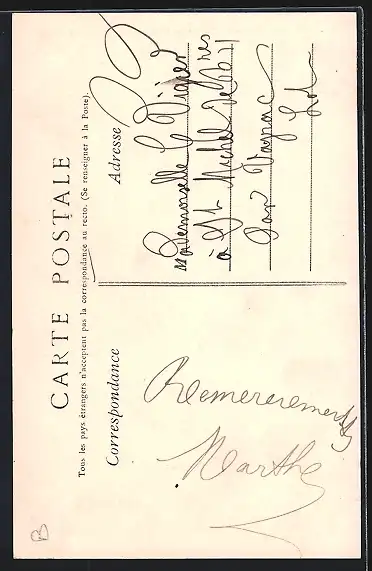 CARTE POSTALE
Tous les pays étrangers n'acceptent pas la correspondance au recto. (Se renseigner à la Poste).
Correspondance
Adresse
Remerciements
Marthe
Mademoiselle
à St Michel de
par Vayrac
Lot
B